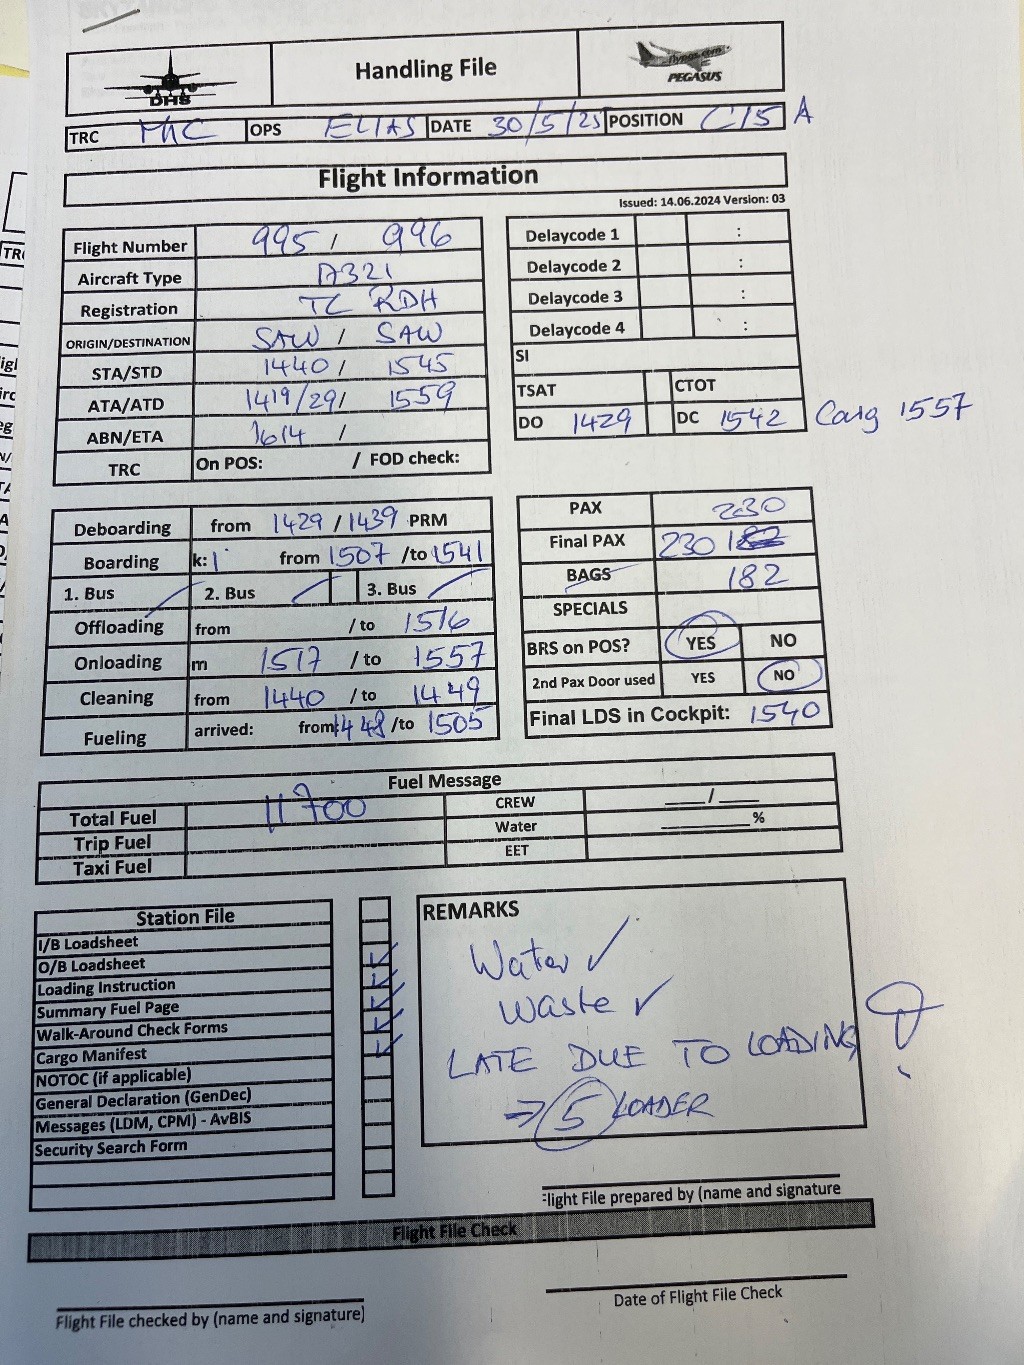 DHS
Handling File
flypgs.com
PEGASUS
TRC MC OPS ELIAS DATE 30/5/25 POSITION C15 A
Flight Information
Issued: 14.06.2024 Version: 03
Flight Number 995 / 996
Aircraft Type A321
Registration TC RDH
ORIGIN/DESTINATION SAW / SAW
STA/STD 1440 / 1545
ATA/ATD 1419/29/ 1559
ABN/ETA 1614 /
TRC On POS: / FOD check:
Delaycode 1 :
Delaycode 2 :
Delaycode 3 :
Delaycode 4 :
SI
TSAT CTOT
DO 1429 DC 1542 Carg 1557
Deboarding from 1429 / 1439 PRM
Boarding k: 1 from 1507 /to 1541
1. Bus 2. Bus 3. Bus
Offloading from / to 1516
Onloading m 1517 / to 1557
Cleaning from 1440 / to 1449
Fueling arrived: from 1448 /to 1505
PAX 230
Final PAX 230
BAGS 182
SPECIALS
BRS on POS? YES NO
2nd Pax Door used YES NO
Final LDS in Cockpit: 1540
Fuel Message
Total Fuel 11700 CREW ___/___
Trip Fuel Water ______%
Taxi Fuel EET
Station File
I/B Loadsheet
O/B Loadsheet
Loading Instruction
Summary Fuel Page
Walk-Around Check Forms
Cargo Manifest
NOTOC (if applicable)
General Declaration (GenDec)
Messages (LDM, CPM) - AvBIS
Security Search Form
REMARKS
Water ✓
Waste ✓
LATE DUE TO LOADING
⇒ 5 LOADER
Flight File prepared by (name and signature
Flight File Check
Flight File checked by (name and signature)
Date of Flight File Check